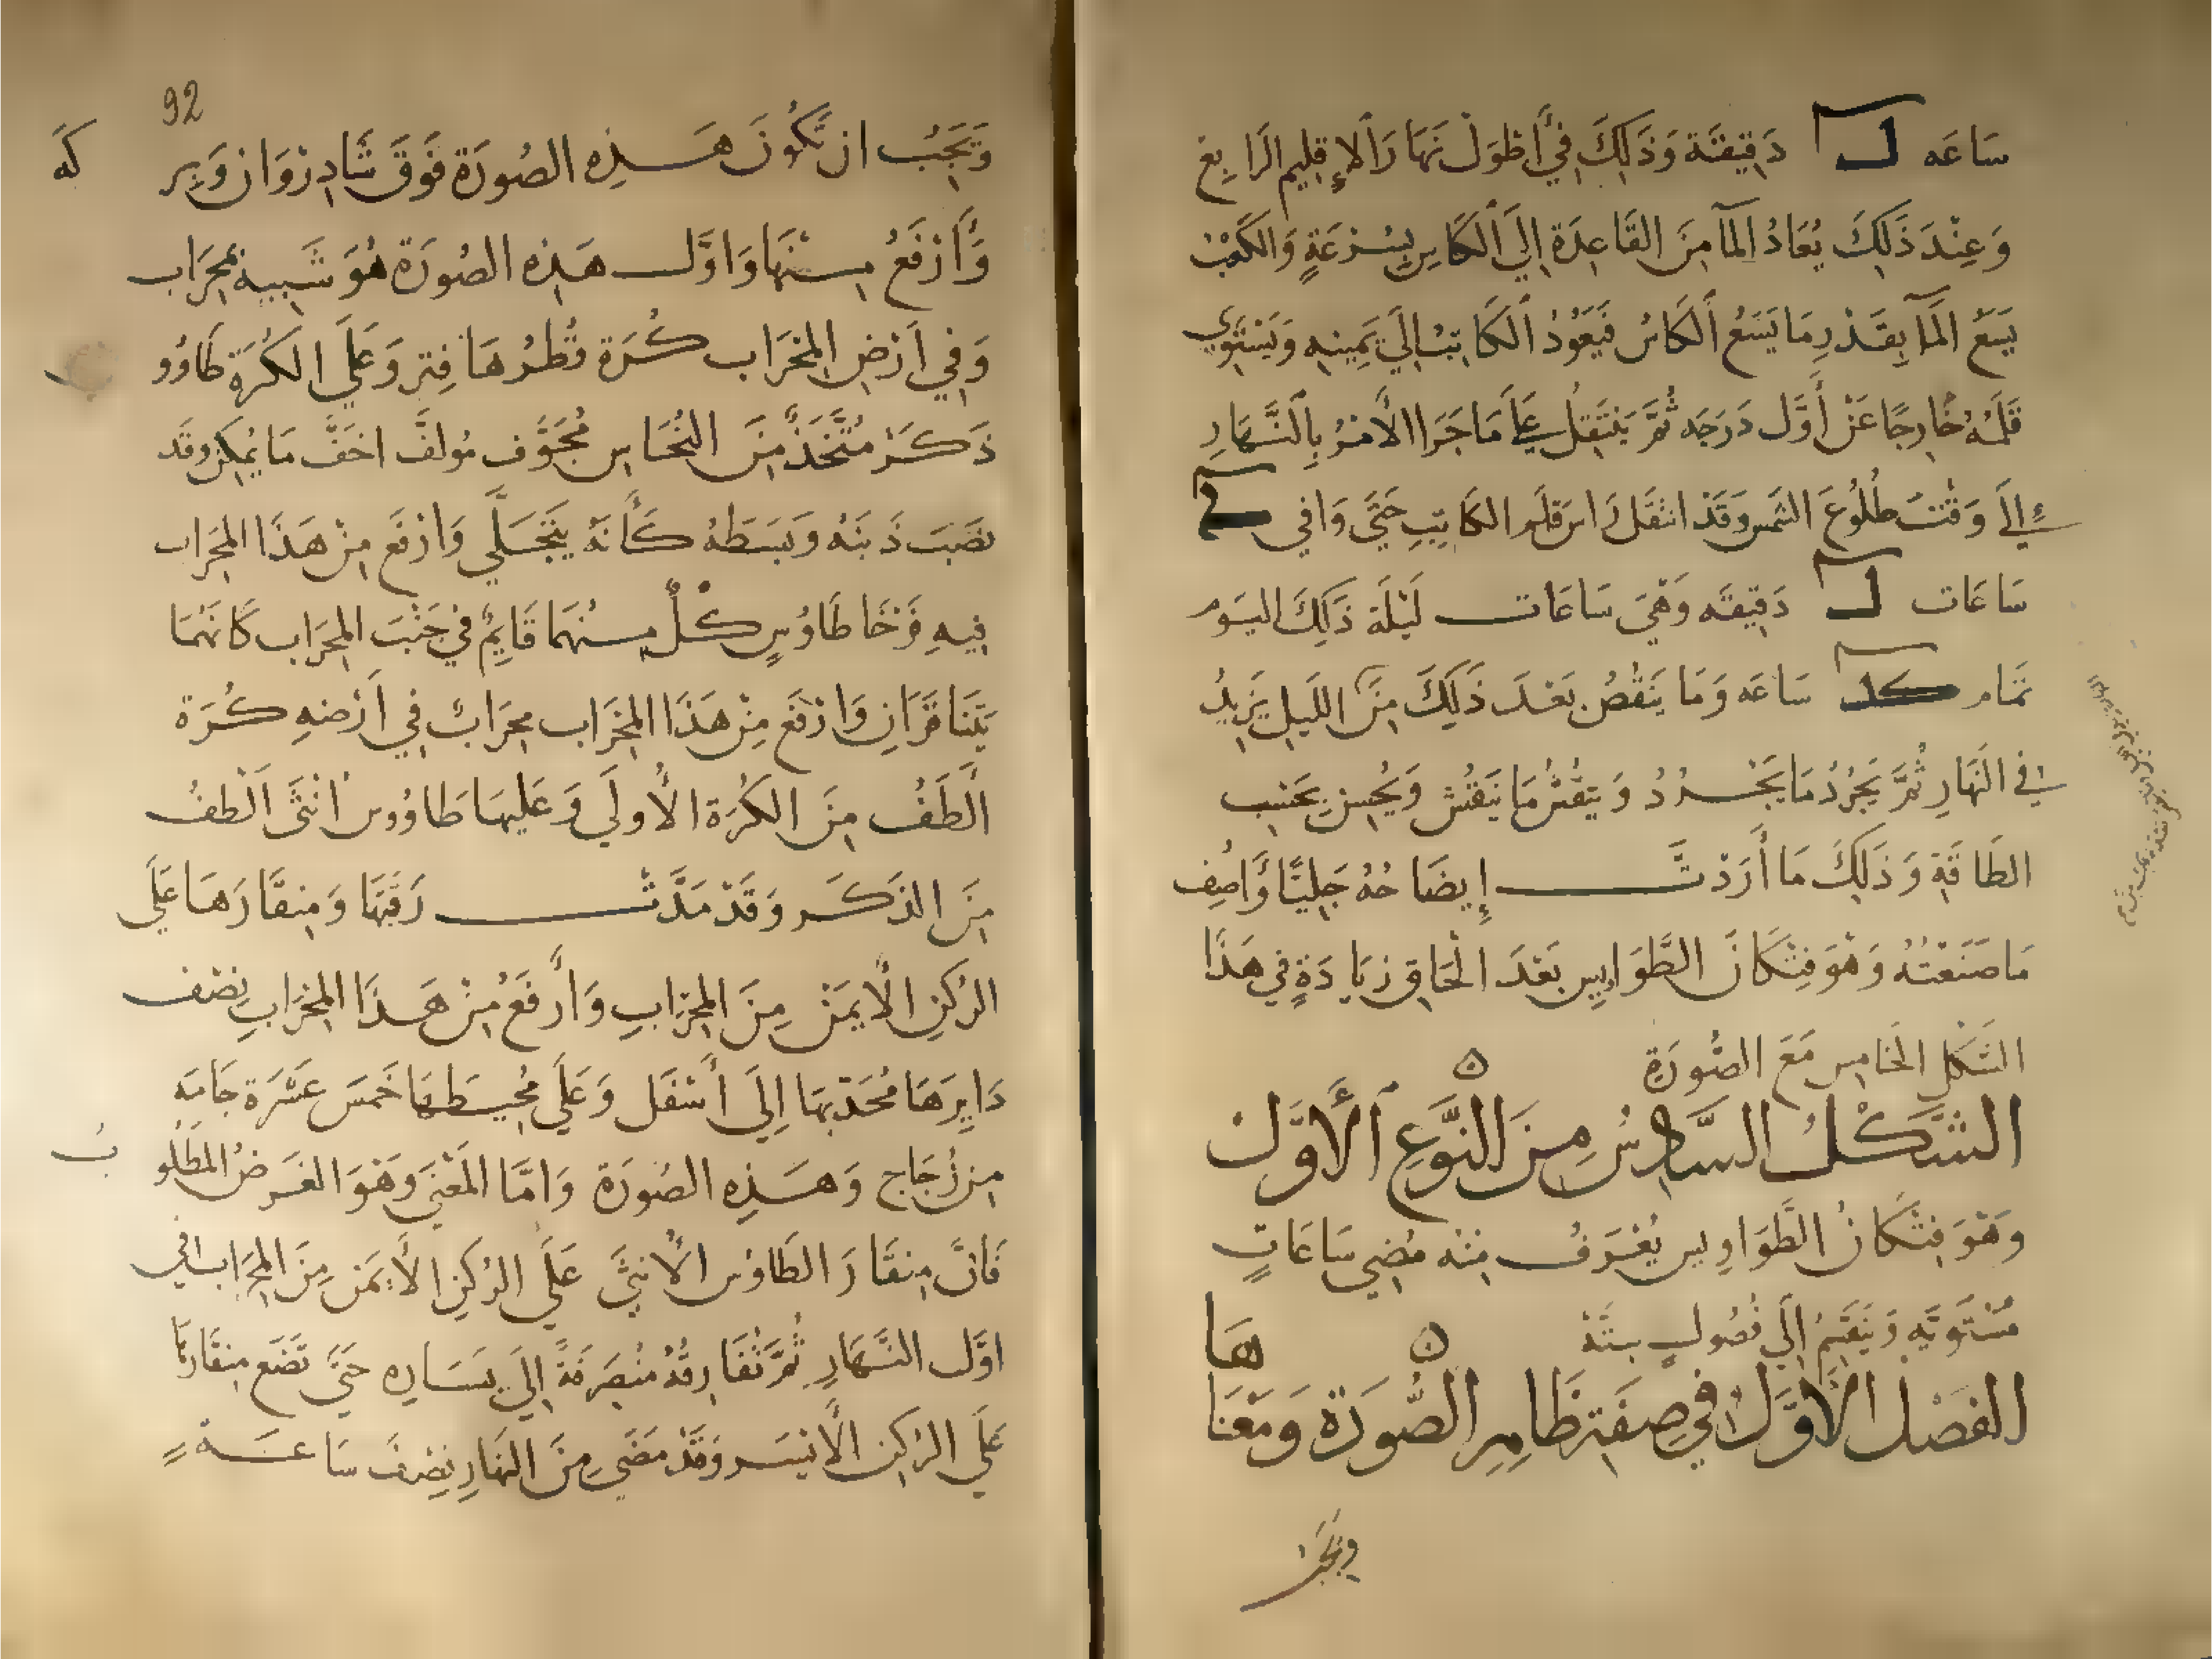 سَاعَه ل دَقِيقَة وَذَلِكَ فِي أَطْوَلْ نَهَارِ الإِقلِيم الرَابِع
وَعِنْدَ ذَلِكَ يُعَادُ المَآ مِنَ القَاعِدَة إِلَى الكَاسِ بِسُرْعَةٍ وَالكَعْبُ
يَسَعْ المَآ بِقَدْرِ مَا يَسَعُ الكَاسُ فَيَعُودُ الكَاتِبُ إِلَى يَمِينِهِ وَيَسْتَوِي
قَلَمُهُ خَارِجًا عَنْ أَوَّل دَرَجَه ثُمَّ يَنتَقِلُ عَلَى مَا جَرَا الأمْرُ بِالنَّهَارِ
إِلَى وَقْتِ طُلُوعَ الشَمْس وَقَدْ انْتَقَلَ رَاس قَلَم الكَاتِبِ حَتَّى وَافي
سَاعَات ل دَقِيقَه وَهْيَ سَاعَات لَيْلَة ذَلِكَ اليَوم
تمَام كد سَاعَه وَمَا يَنقُصُ بَعْدَ ذَلِكَ مِنَ اللَيل يَزِيدُ
فِي النَهَارِ ثُمَّ يَجُرْدُ مَا يَجْرُدُ وَيَنقُشُ مَا يَنقُش وَيُحْسِن بِحَسْبِ
الطَاقَةِ وَذَلِكَ مَا أَرَدْتَ إِيضَاحُهُ جَلِيًّا وَأصِف
مَا صَنَعْتُهُ وَهْوَ فِنْكَانَ الطَّوَاوِيسِ بَعْدَ الْحَاقِ زيَادَةٍ فِي هَذَا
الشَكْلِ الخَامِس مَعَ الصُّورَةِ
الشَّكْلُ السَّادِسُ مِنَ النَّوْعِ الأَوَّل
وَهْوَ فِنْكَانُ الطَّوَاوِيس يُعْرَفُ مِنْه مُضِي سَاعَاتٍ
مُسْتَويَّه وَيَنْقَسِمُ إِلَى فُصُولٍ سِتَّة
الفَصْلُ الأوَّلُ في صِفَة ظَاهِرِ الصُّورَةِ وَمَعْنَاهَا
ويَجُب
92
وَيَجُب ان تَكُونَ هَذِهِ الصُورَة فَوقَ شَادِرْوَان وَبِركَه
وَأَرْفَعُ مِنْهَا وَاوَّل هَذِه الصُورَة هُوَ شَبِيه بمِحرَاب
وَفِي أَرْضِ المِحْرَاب كُرَة قُطْرُهَا فِتر وَعَلَى الكُرَة طَاوُو
ذَكَرْ مُتَّخَذٌ مِنَ النُحَاسِ مُجَوَّف مُولفَ اخَفَّ مَا يُمكِن وقَد
نَصَبَ ذَنَبَهُ وَبَسَطَهُ كَأَنَهُ يَتَجَلَّي وَارْفَع مِنْ هَذَا المحرَاب
فِيهِ فَرْخَا طَاوُسٍ كُلٌ مِنهُمَا قَايِمٌ في جَنْبَ المِحرَاب كَانَهُمَا
يَتَنَاقَرَانِ وَارْفَعْ مِنْ هَذَا المِحْرَاب محِرَابٌ فِي اَرْضهِ كُرَة
الَطَفُ مِنَ الكُرَة الأُولَى وَعَليهَا طَاوُوس انثَى اَلْطفُ
مِنَ الذَكَر وَقَدْ مَدَّتْ رَقَبَتهَا وَمِنقَارَهَا عَلَى
الرُكنِ الأَيْمَنْ مِنَ المِحْرَابِ وَأَرفَعُ مِنْ هَذَا المِحْرَابِ نِصْف
دَايِرَهَا مُحَدَّبهَا إِلَى أَسْفَل وَعَلَى مُحِيطهَا خَمسَ عَشْرَة جَامَه
مِن زُجَاج وَهَذِهِ الصُورَة وَامَّا المَعْنَى وَهْوَ الغَرضُ المطلُوبُ
فَانَّ مِنقَارَ الطَاوُس الأُنثَى عَلَى الرُكنِ الأَيمَن مِنَ المِحرَاب فِي
اوَّل النَّهَارِ ثُمَّ تُفَارِقُهُ مُنْصَرِفَةً إِلَى يَسَارِهِ حَتَّى تَضَع مِنقَارهَا
عَلَى الرُكن الأَيْسَر وَقَدْ مَضَى مِنَ النَهَارِ نِصْفَ سَاعَة